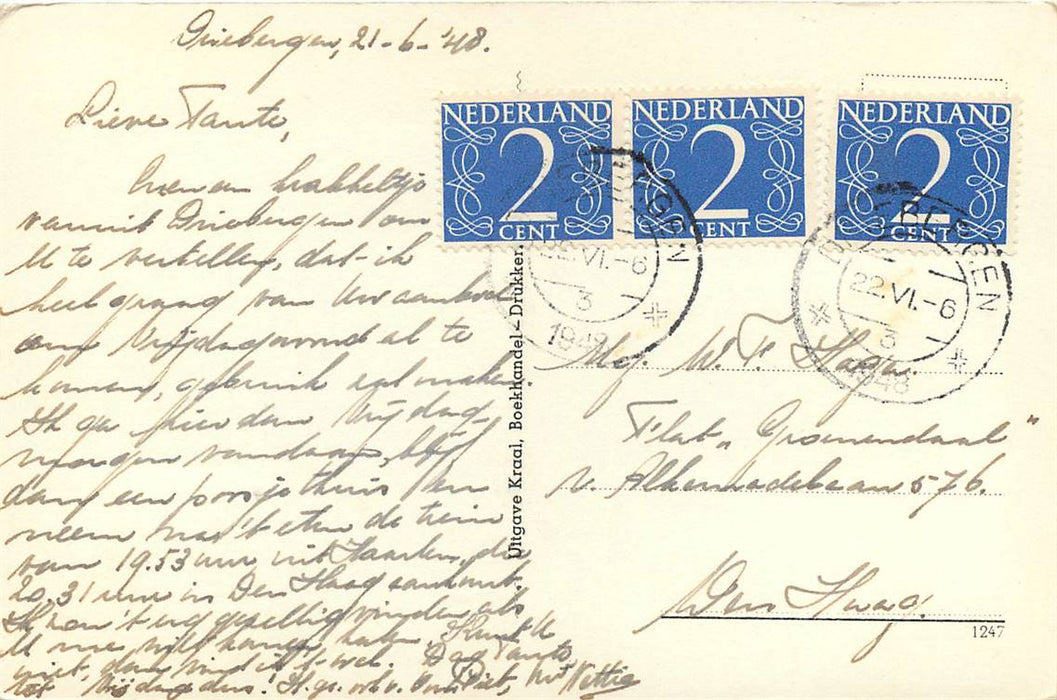 Driebergen, 21-6-'48.
Lieve Tante,
Even een krabbeltje
vanuit Driebergen om
U te vertellen, dat ik
heel graag van Uw aanbod
om Vrijdagavond al te
komen, gebruik zal maken.
Ik ga hier dan Vrijdag-
morgen vandaan, blijf
dan een poosje thuis en
neem na 't eten de trein
van 19.53 uur uit Haarlem, die
20.31 uur in Den Haag aankomt.
Ik zou 't erg gezellig vinden als
U me wilt komen halen. Kunt U
niet, dan vind ik 't wel. Dag Tante,
tot Vrijdag dus! H. gr. ook v. Piet, Nettie
NEDERLAND
2
CENT
NEDERLAND
2
CENT
NEDERLAND
2
CENT
VI.-6
3
1948
DRIEBERGEN
22.VI.-6
3
1948
Mej. W. F.
Flat "Groenendaal"
v. Alkemadelaan 576.
Den Haag.
1247
Uitgave Kraal, Boekhandel-Drukker.